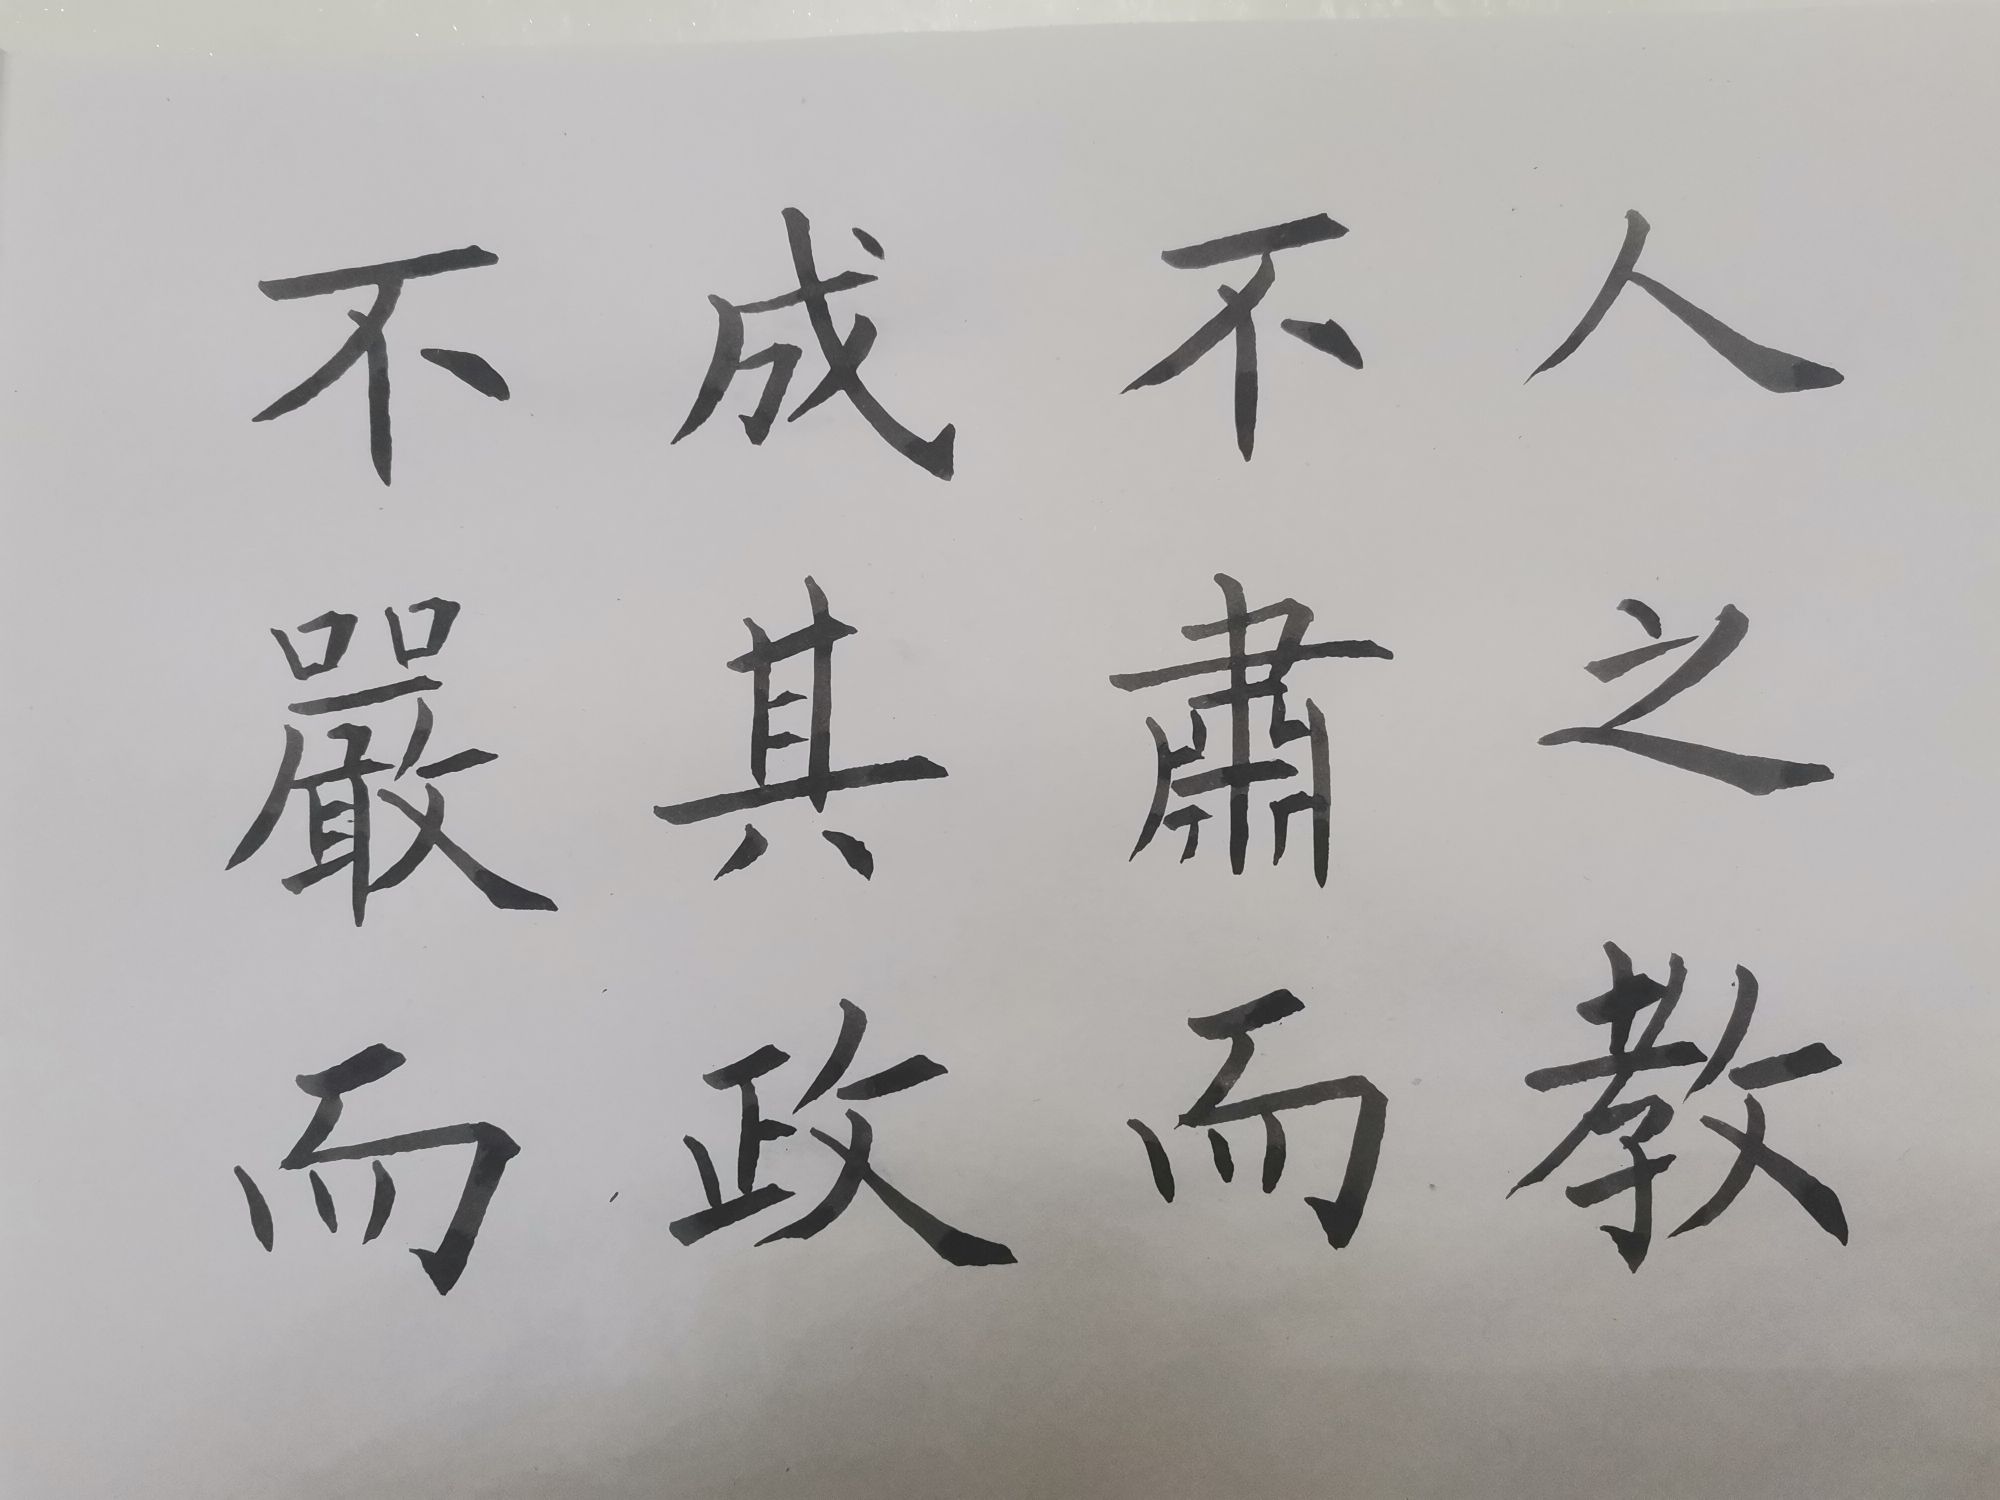 人之教
不肅而
成其政
不嚴而